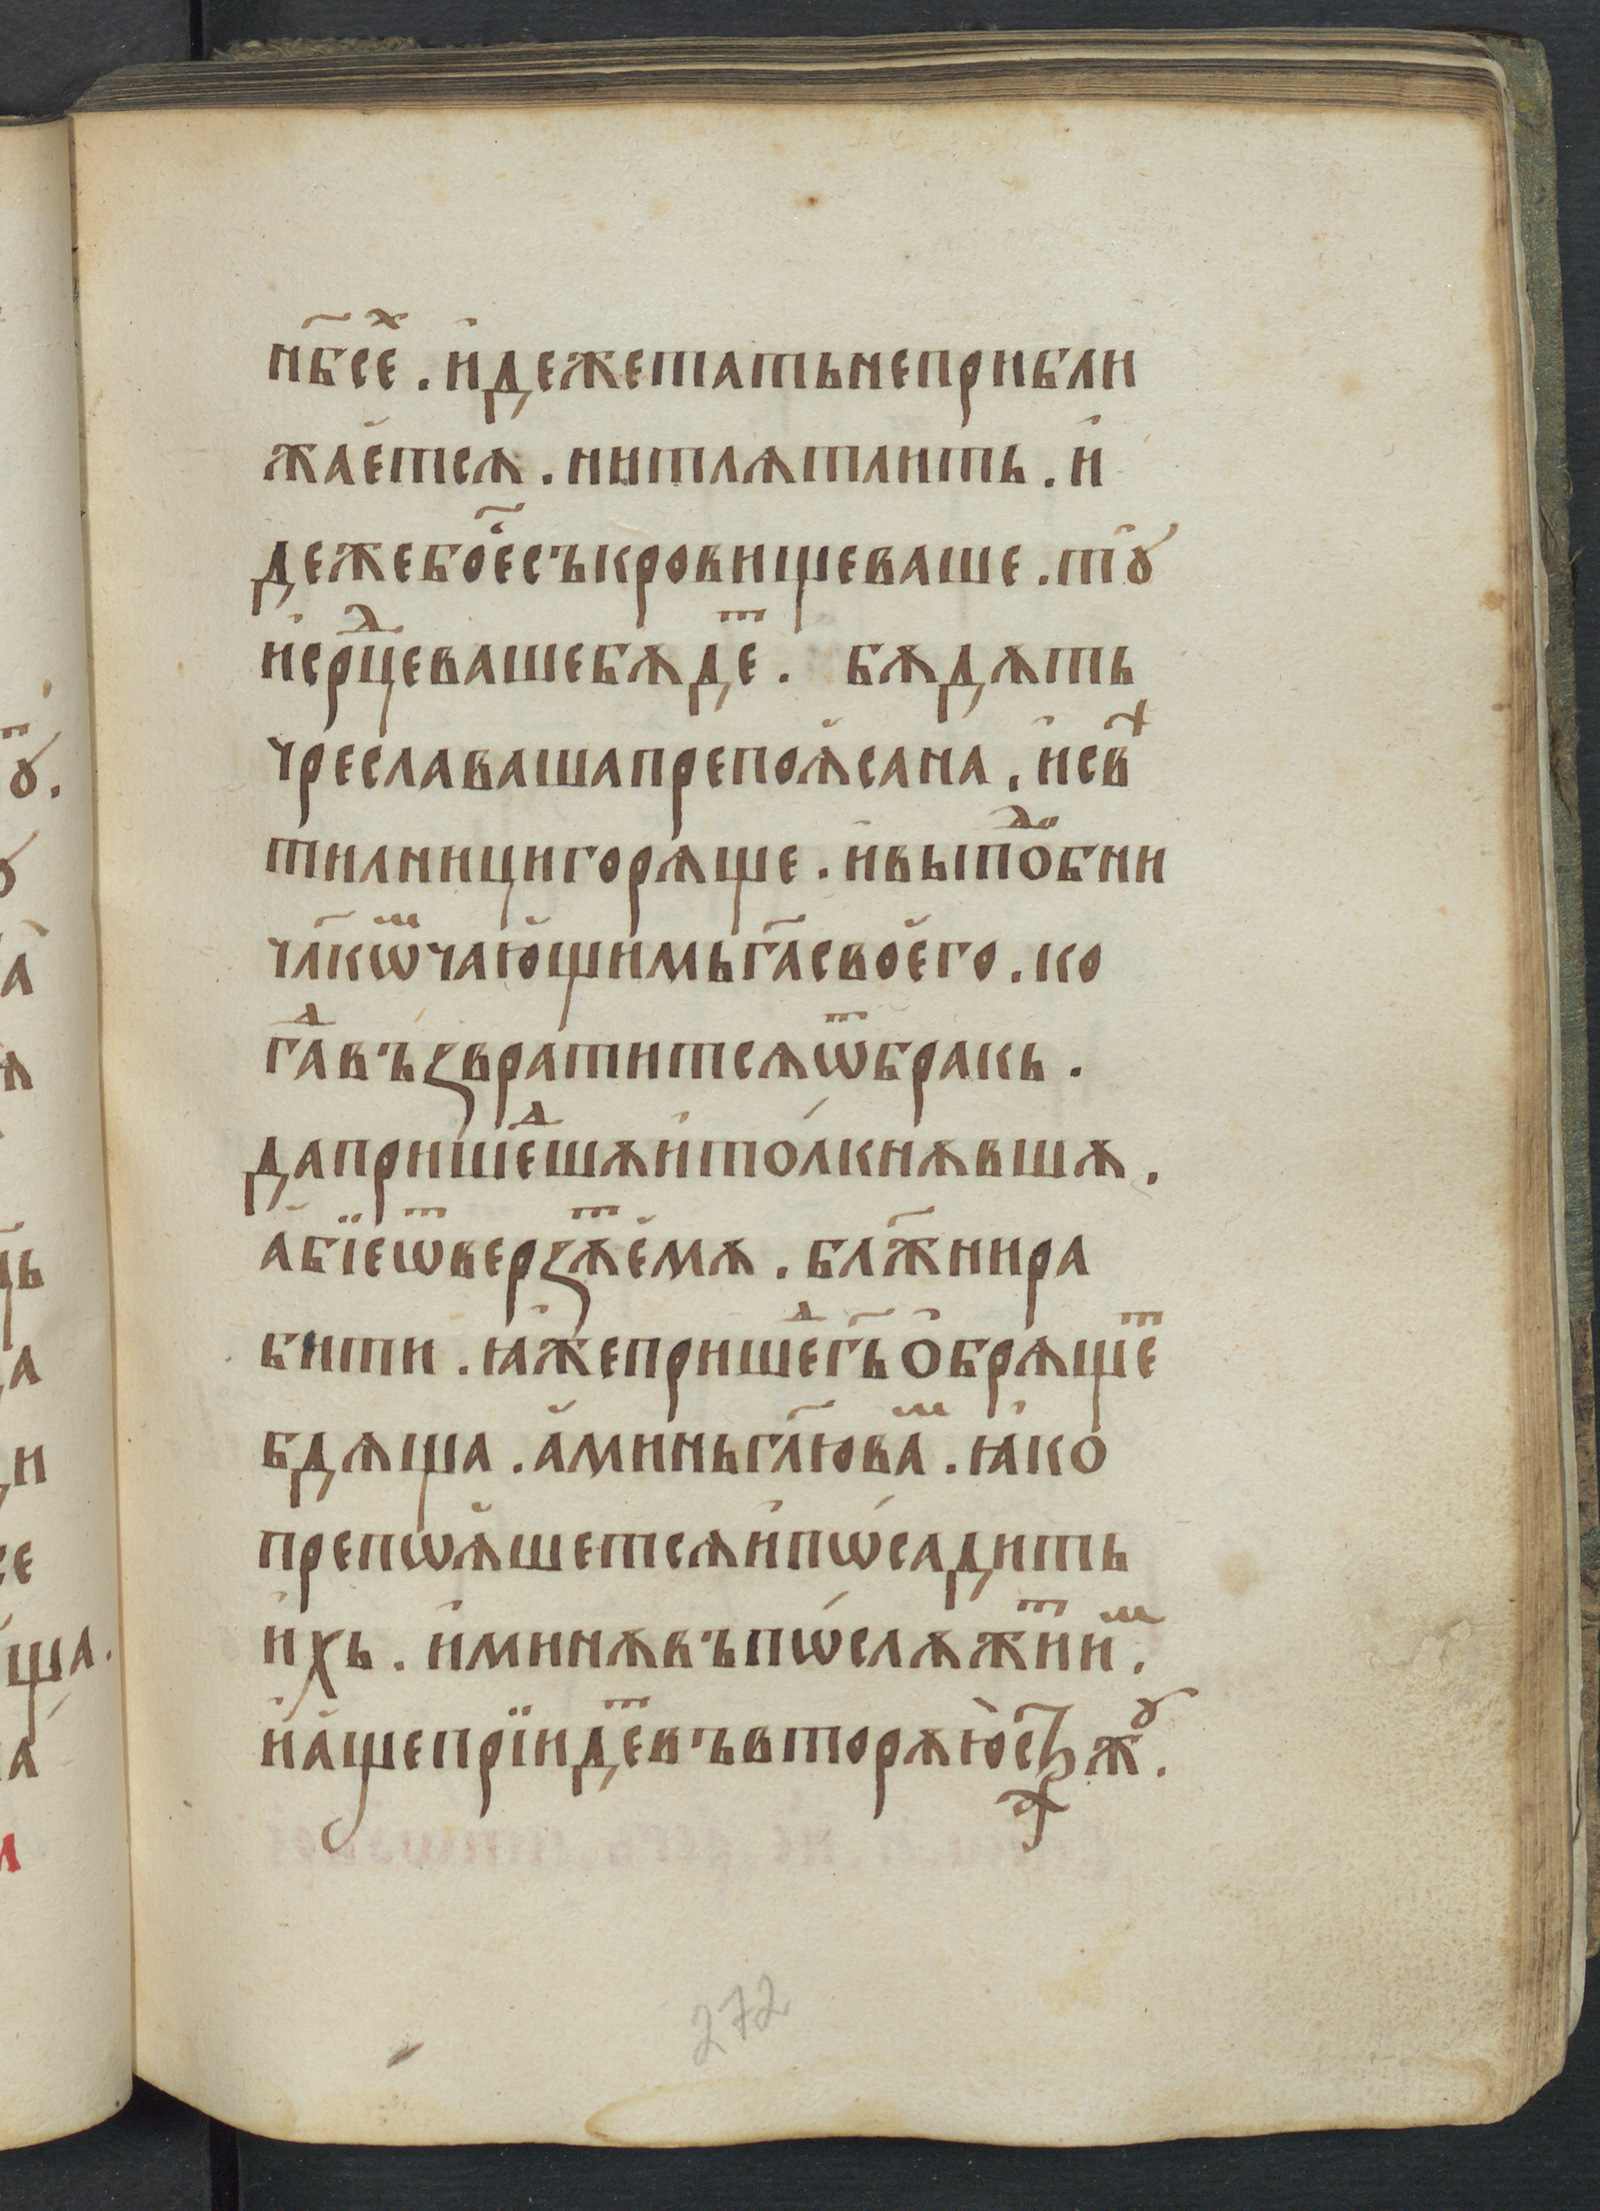 нб҃сеⷯ . и҆дежетатьнеприбли
жае҆тсѧ . нитлѧтлить . и҆
дежебое҆съкровищеваше . тꙋ̑
и҆срⷣцевашебѫдеⷮ . бѫдѫть
чреславашапрепоꙗ҆сана . и҆свѣ
тилницигорѧще . и҆выпоⷣбни
чл҃кѡⷨчаю҆щимьга҃свое҆го . ко
гдⷶвъꙁвратитсѧѿбракь .
дапришеⷣшѫи҆то́лкнѫвшѫ .
а҆бїеѿверꙁѫⷮе҆мѫ . бл҃жнира
бити . ꙗ҆жепришеⷣгь҃ ѻ҆брѧщеⷮ
бдѧща . а҆миньгл҃ювⷶⷨ . ꙗ҆ко
препѡꙗ҆шетсѧи҆пѡ́садить
ихь . и҆минѫвъпѡ́слѫжиⷮиⷨ .
и҆а҆щепрїидеⷮвъвторѫю҆ст҃ражꙋ .
272